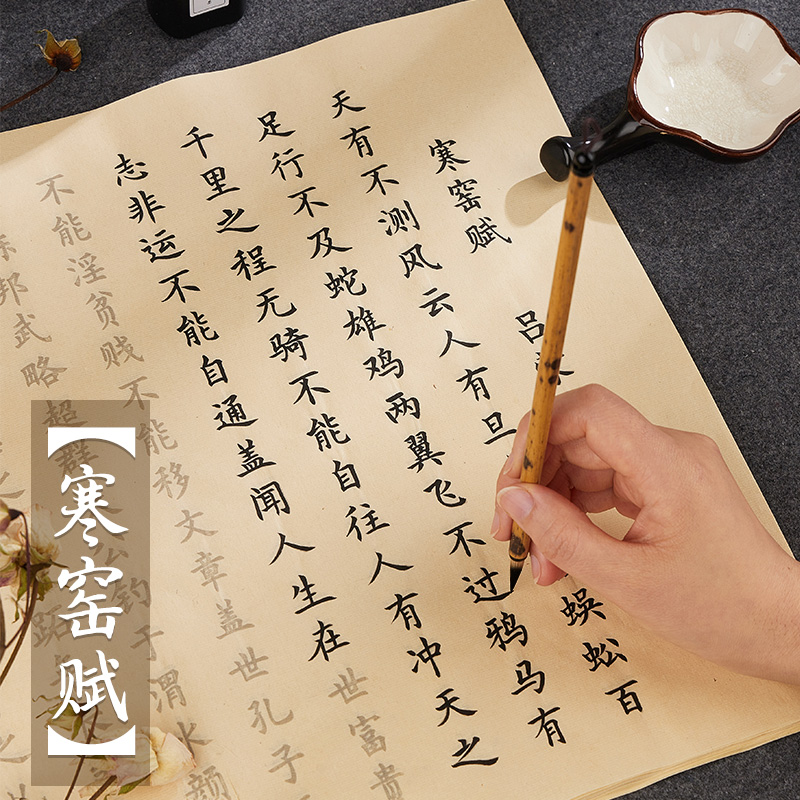 寒窑赋 吕
天有不测风云人有旦 蜈蚣百
足行不及蛇雄鸡两翼飞不过鸦马有
千里之程无骑不能自往人有冲天之
志非运不能自通盖闻人生在世富贵
不能淫贫贱不能移文章盖世孔子
邦武略超群 公钓于渭水颜
【寒窑赋】